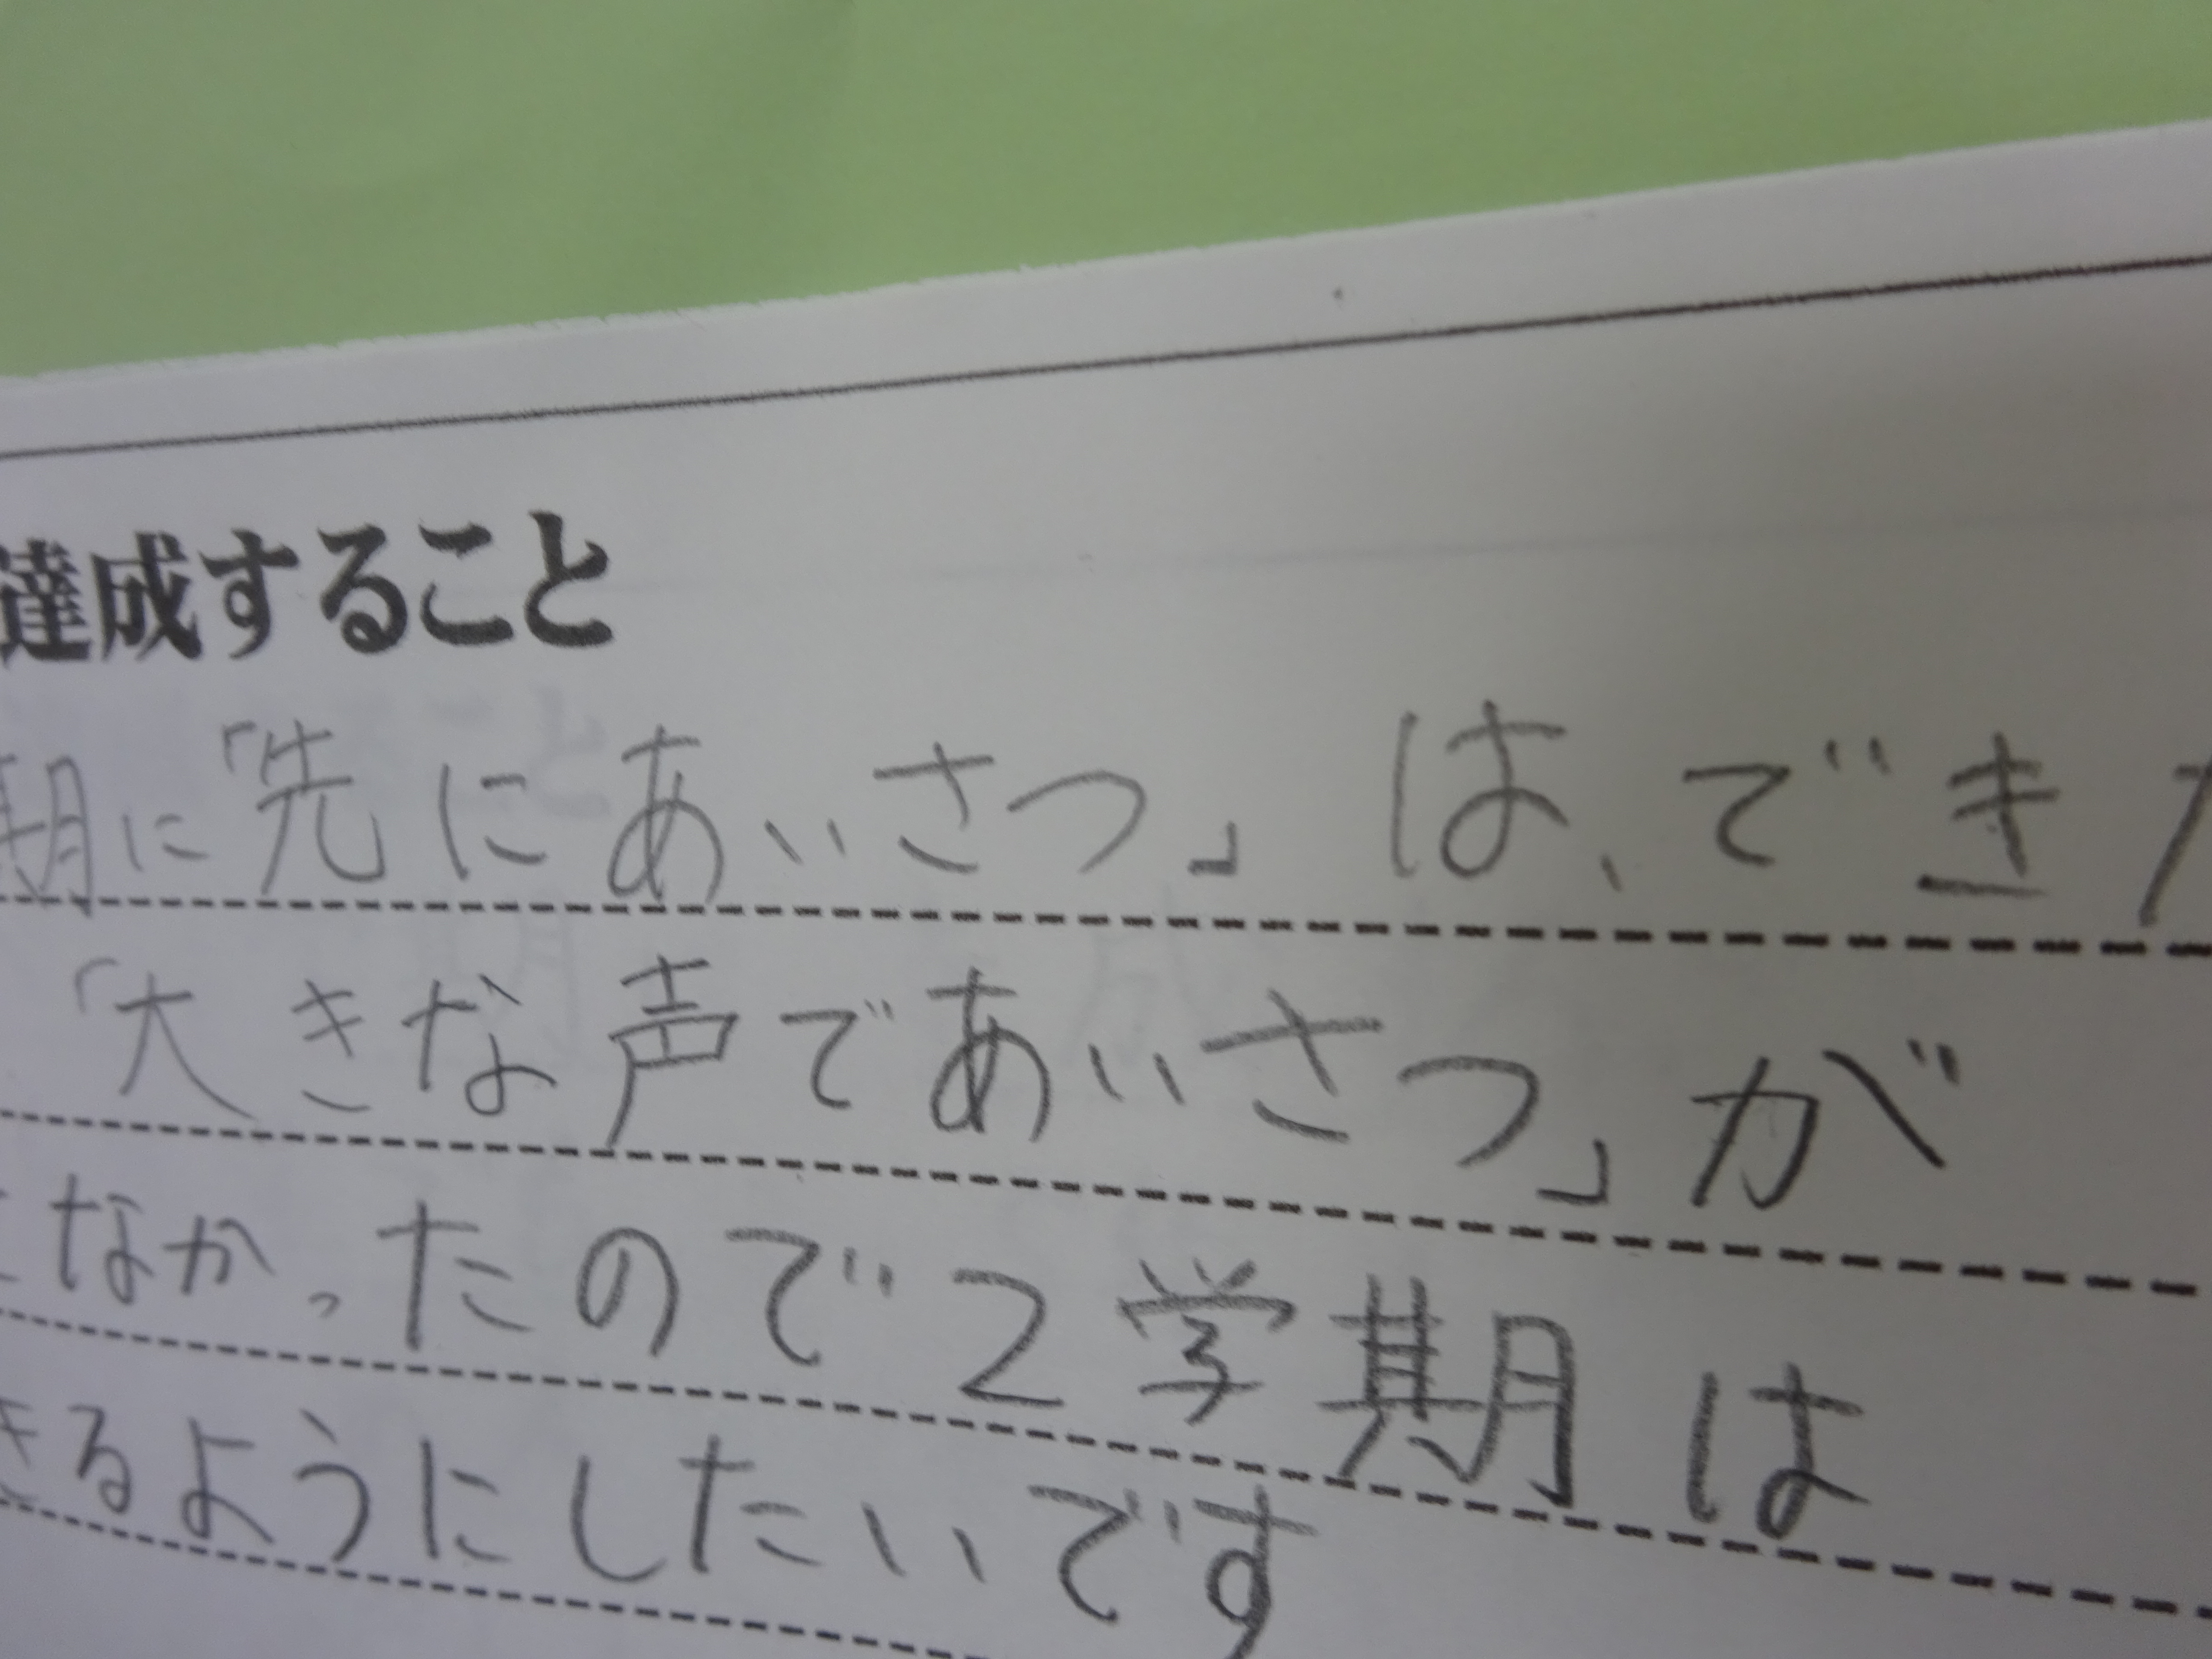 達成すること
期に「先にあいさつ」は、でき
「大きな声であいさつ」が
なかったので2学期は
きるようにしたいです